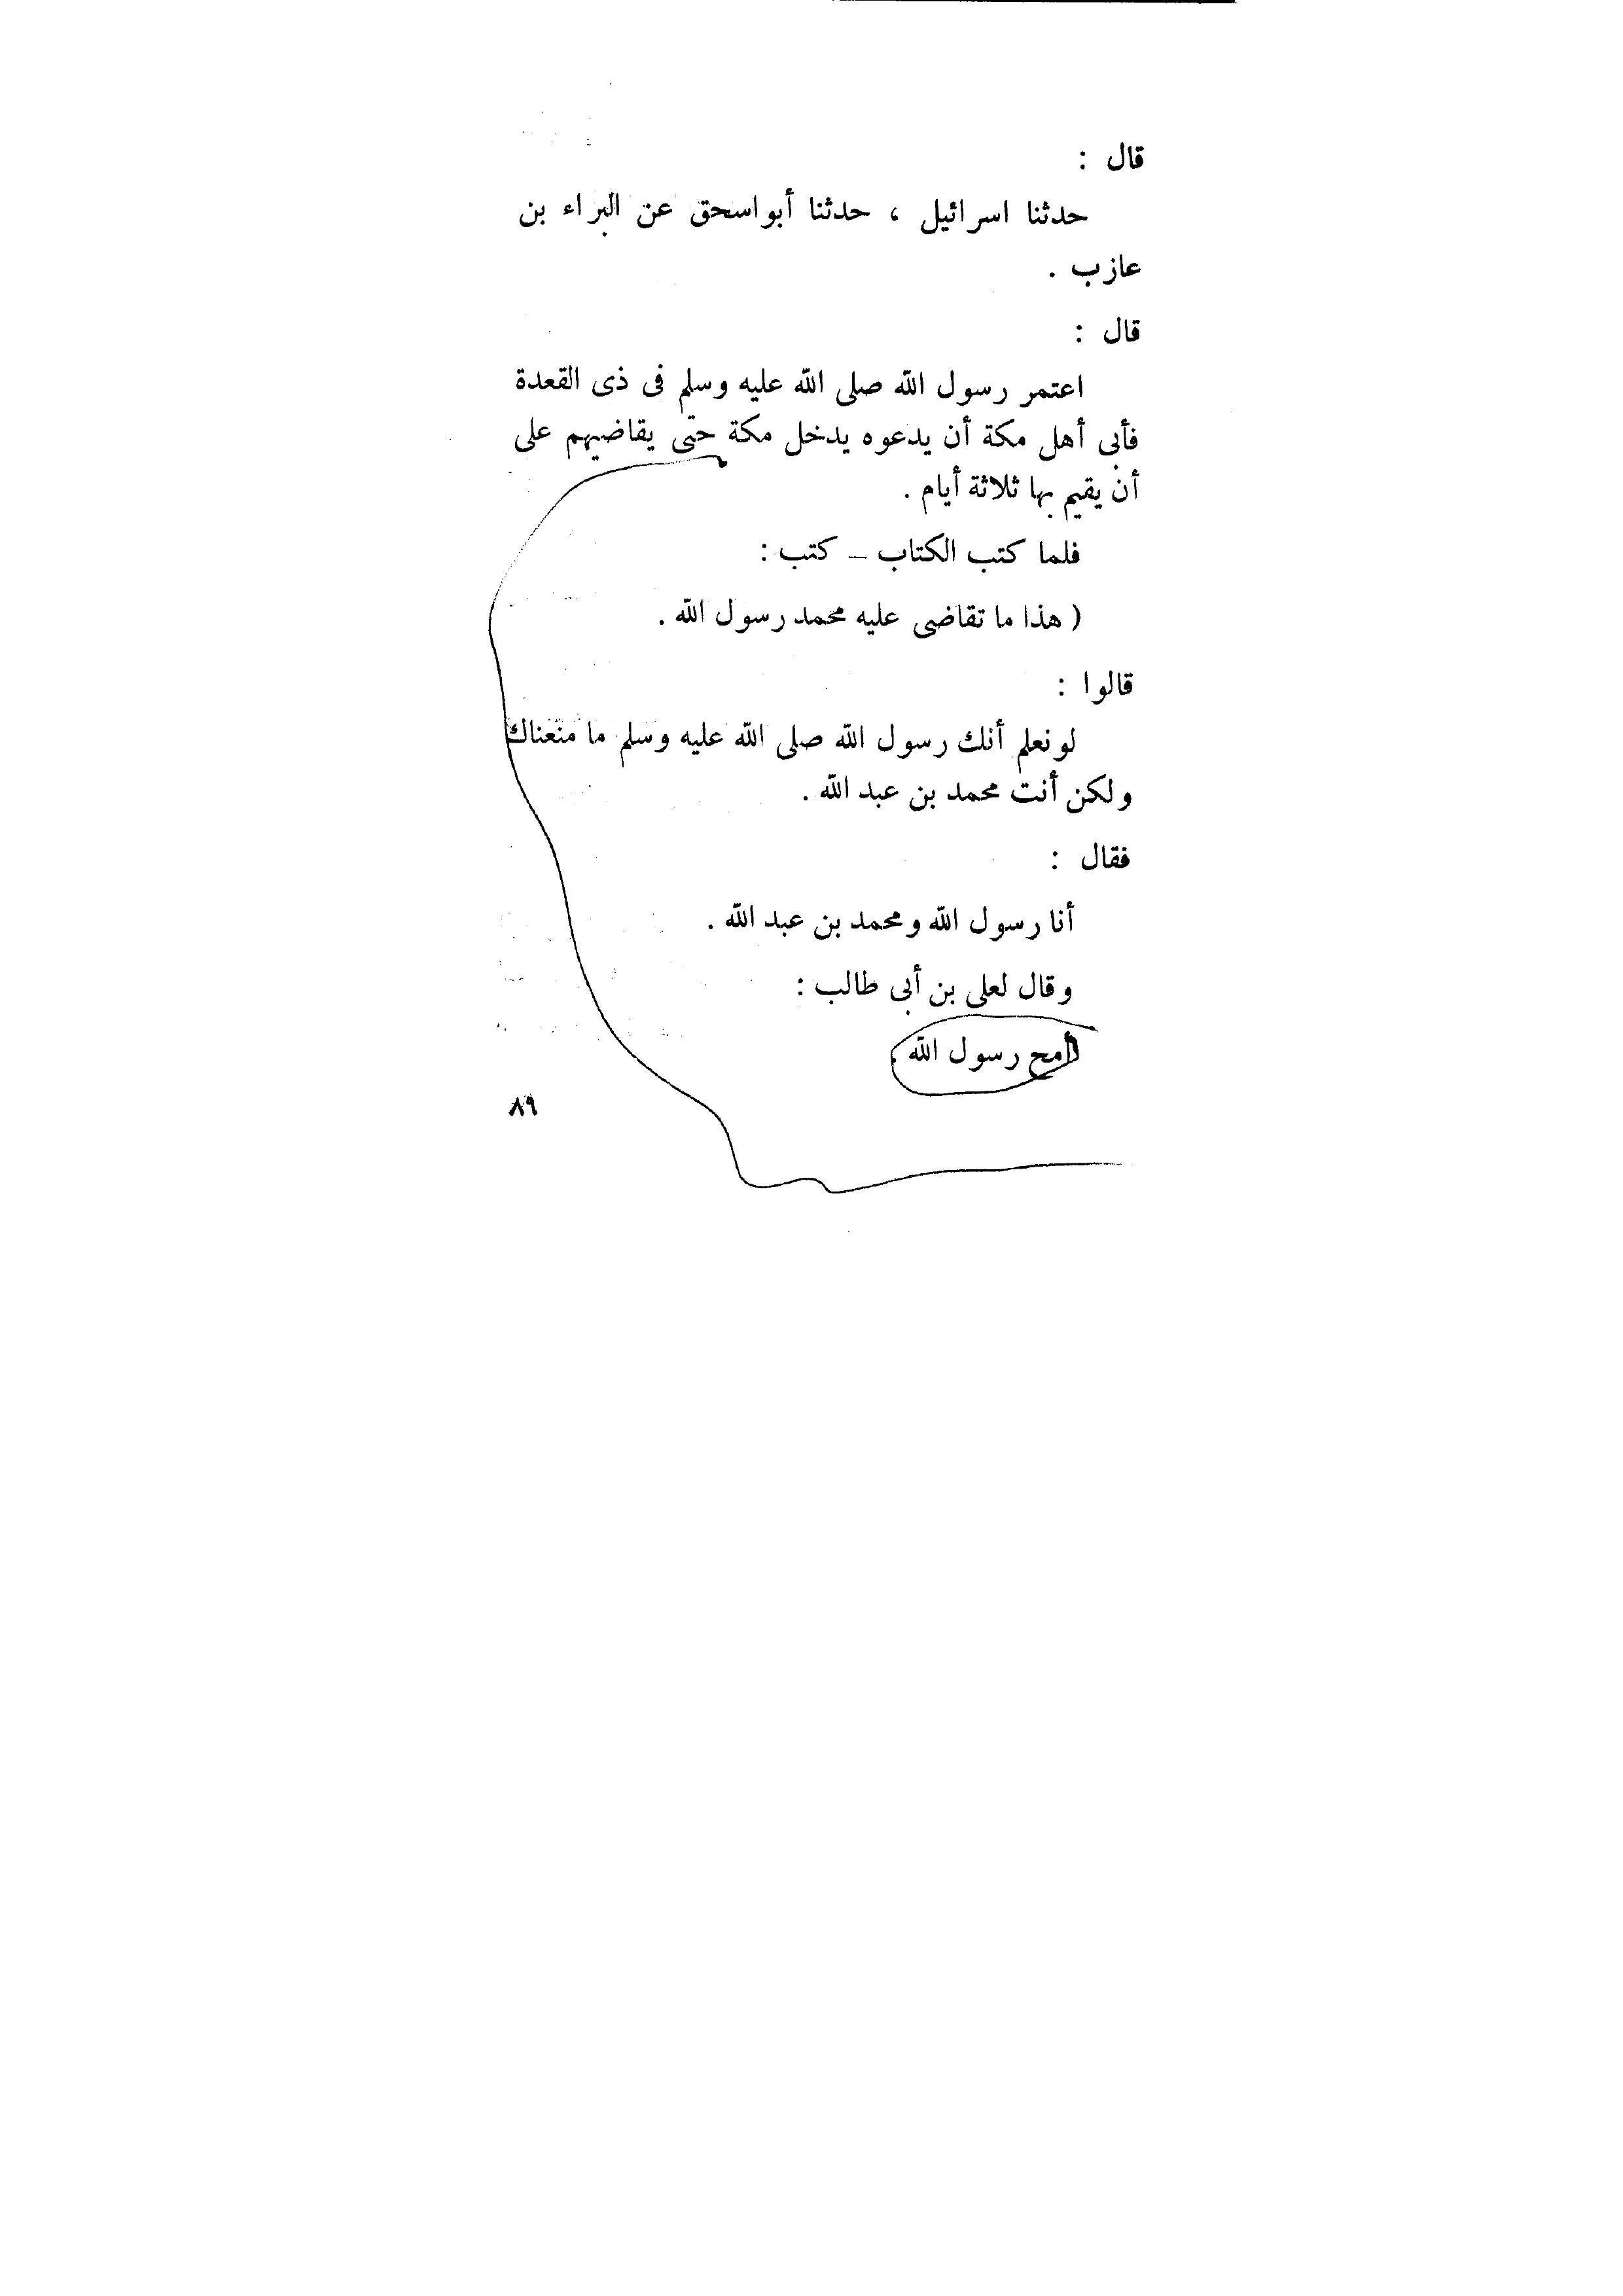 قال :
حدثنا اسرائيل ، حدثنا أبواسحق عن البراء بن
عازب .
قال :
اعتمر رسول الله صلى الله عليه وسلم فى ذى القعدة
فأبى أهل مكة أن يدعوه يدخل مكة حتى يقاضيهم على
أن يقيم بها ثلاثة أيام .
فلما كتب الكتاب – كتب :
( هذا ما تقاضى عليه محمد رسول الله .
قالوا :
لو نعلم أنك رسول الله صلى الله عليه وسلم ما منعناك
ولكن أنت محمد بن عبد الله .
فقال :
أنا رسول الله ومحمد بن عبد الله .
وقال لعلى بن أبى طالب :
امح رسول الله .
٨٩